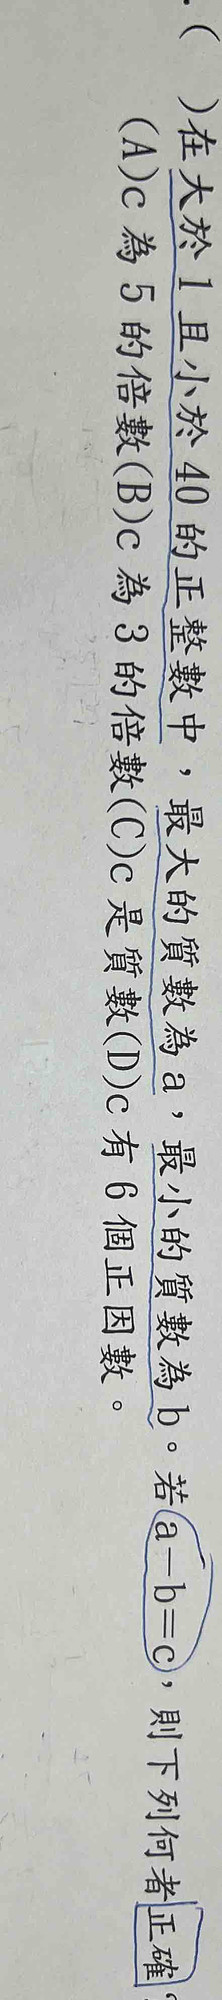 .(　)在大於1且小於40的正整數中，最大的質數為a，最小的質數為b。若a－b=c，則下列何者正確?
(A)c為5的倍數(B)c為3的倍數(C)c是質數(D)c有6個正因數。